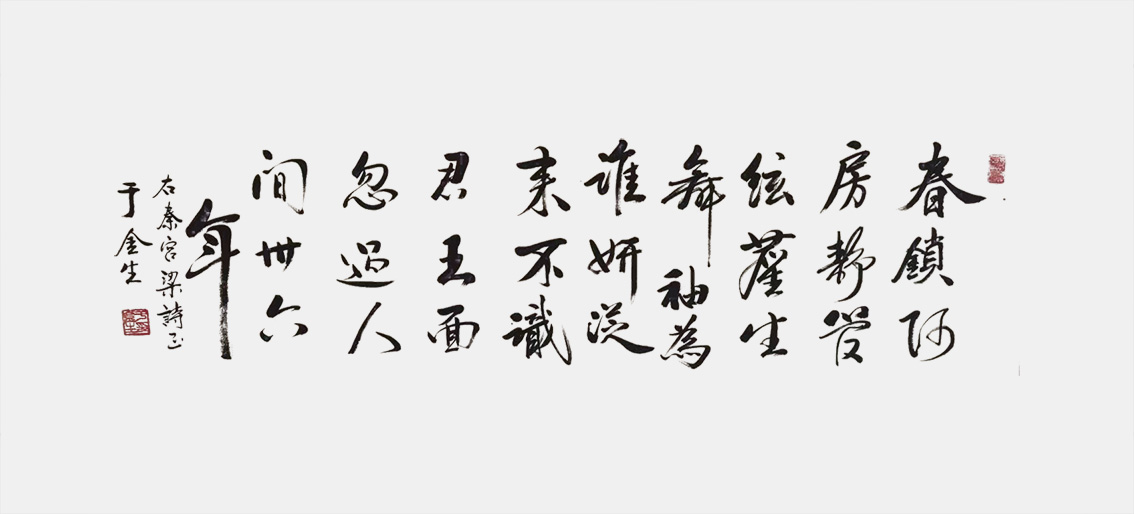 春鎖阿
房靜管
絃塵生
舞袖為
誰妍從
来不識
君王面
忽過人
間卅六
年
右秦宮梁詩正
于金生